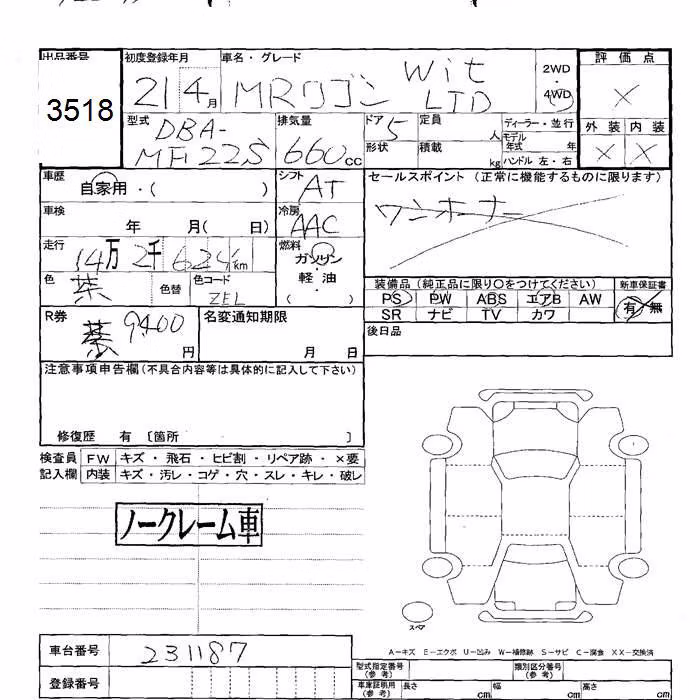 出品番号 初度登録年月 車名・グレード 評価点
3518 21 4月 MRワゴン Wit LTD 2WD 4WD X
型式 排気量 ドア 定員 ディーラー・並行 外装 内装
DBA- MF22S 660cc 5 人 モデル年式 年 X X
形状 積載 kg ハンドル 左・右
車歴 シフト セールスポイント (正常に機能するものに限ります)
自家用・( ) AT ワンオーナー
車検 冷房
年 月( 日) AAC
走行 燃料
14万 2千 624km ガソリン・軽油
色 色替 色コード ( ) 装備品 (純正品に限り○をつけてください) 新車保証書
茶 ZEL PS PW ABS エアB AW 有・無
R券 名変通知期限 SR ナビ TV カワ
9400円 月 日 後日品
注意事項申告欄(不具合内容等は具体的に記入して下さい)
修復歴 有 〔箇所 〕
検査員 FW キズ・飛石・ヒビ割・リペア跡・×要
記入欄 内装 キズ・汚レ・コゲ・穴・スレ・キレ・破レ
ノークレーム車
スペア
A-キズ E-エクボ U-凹み W-補修跡 S-サビ C-腐食 XX-交換済
車台番号 231187 型式指定番号(参考) 類別区分番号(参考)
登録番号 車庫証明用(参考) 長さ cm 幅 cm 高さ cm